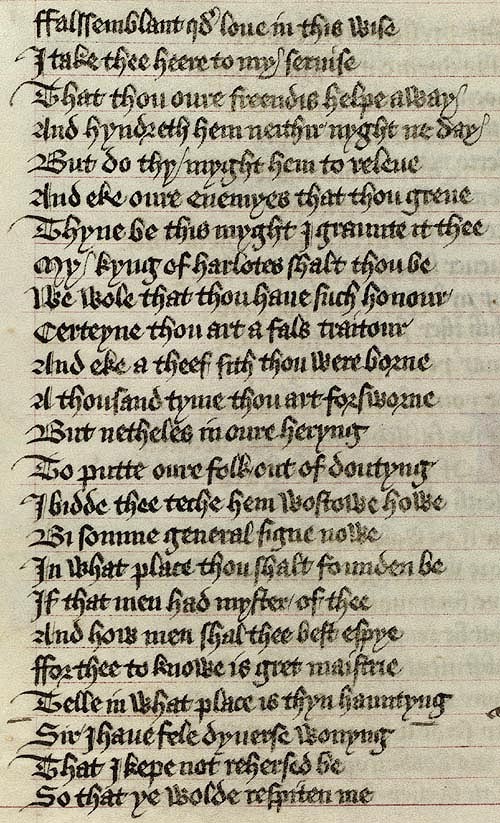 ffalssemblant qd' loue in this wise
I take thee heere to my seruise
That thou oure freendis helpe away
And hyndreth hem neithir nyght ne day
But do thy myght hem to releue
And eke oure enemyes that thou greue
Thyne be this myght I graunte it thee
My kyng of harlotes shalt thou be
We wole that thou haue such honour
Certeyne thou art a fals traitour
And eke a theef sith thou were borne
A thousand tyme thou art forsworne
But netheles in oure heryng
To putte oure folk out of doutyng
I bidde thee teche hem wostowe howe
Bi somme general signe nowe
In what place thou shalt founden be
If that men had myster of thee
And how men shal thee best espye
ffor thee to knowe is gret maistrie
Telle in what place is thyn hauntyng
Sir I haue fele dyuerse wonyng
That I kepe not rehersed be
So that ye wolde respiten me